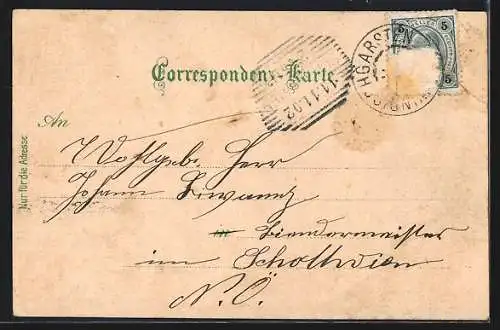 5 5
WINDISCHGARSTEN
11.11.02
Correspondenz-Karte.
An
Nur für die Adresse
Wohlgeb. Herr
Johann
in
im Schottwien
N.Ö.